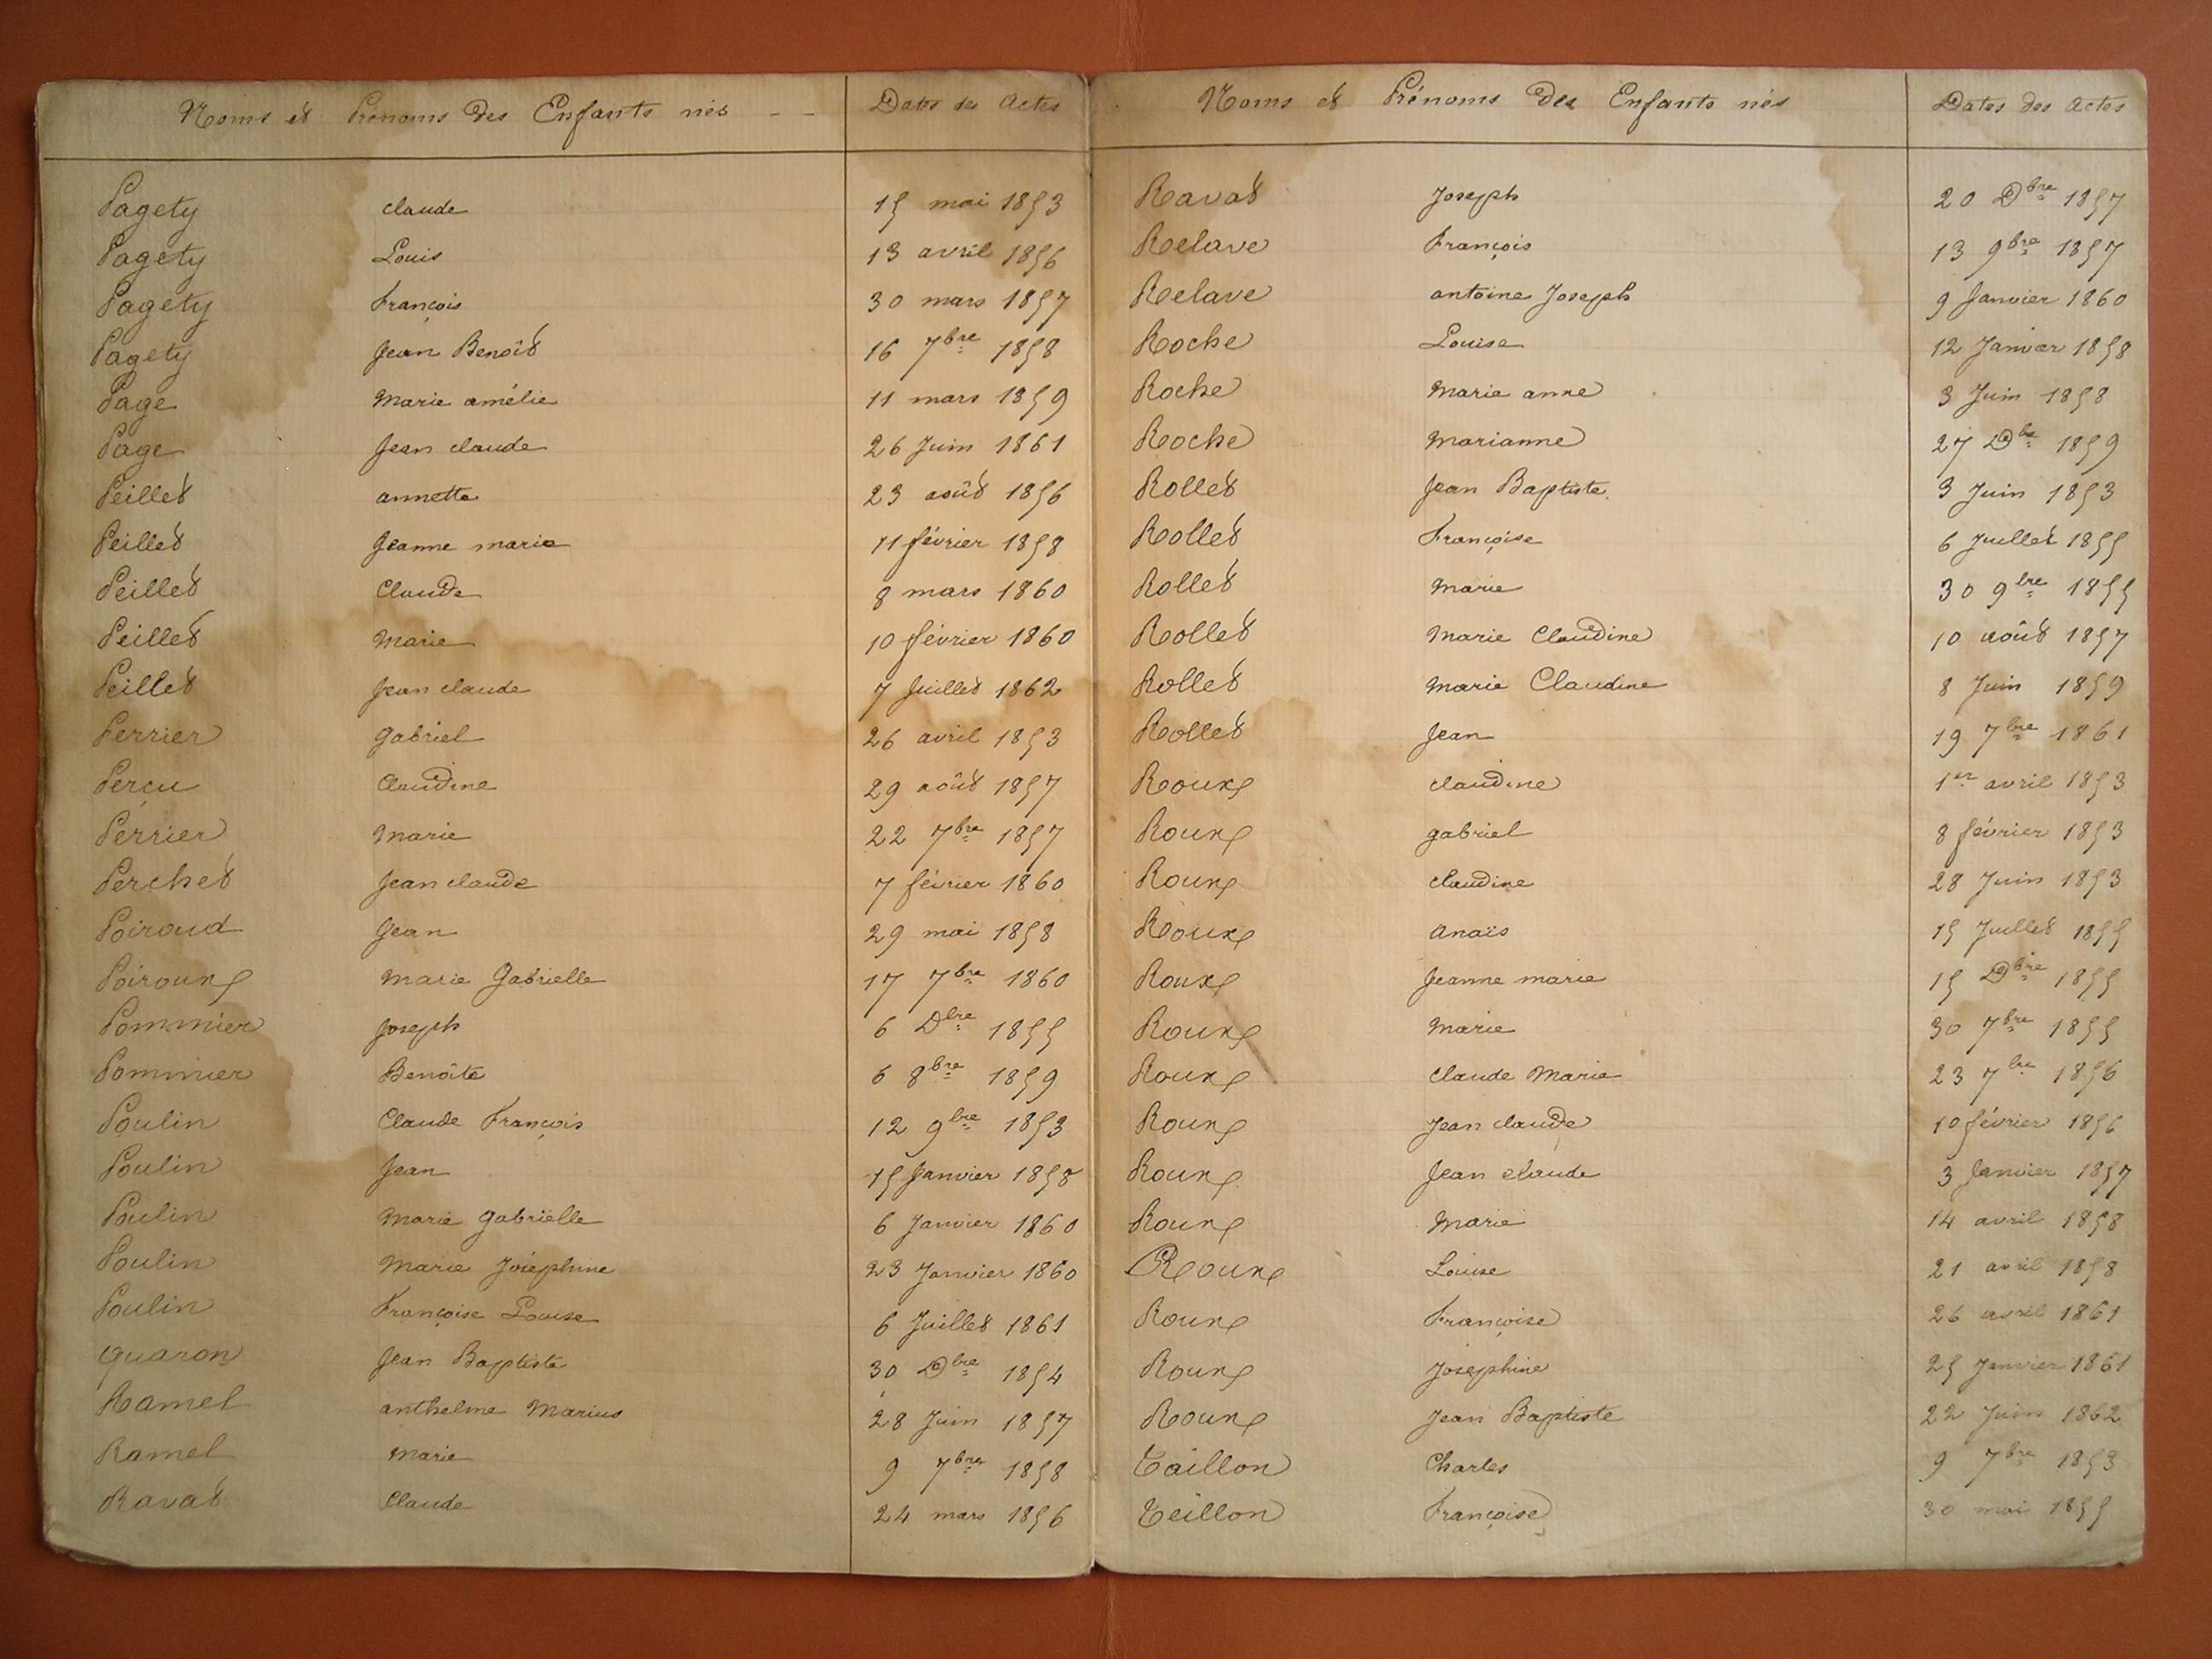 Noms et Prénoms des Enfants nés - - Dates des Actes
Pagety Claude 15 mai 1853
Pagety Louis 13 avril 1856
Pagety François 30 mars 1857
Pagety Jean Benoît 16 7bre 1858
Page Marie amélie 11 mars 1859
Page Jean Claude 26 Juin 1861
Peillet annette 23 août 1856
Peillet Jeanne marie 11 février 1858
Peillet Claude 8 mars 1860
Peillet Marie 10 février 1860
Peillet Jean Claude 7 Juillet 1862
Perrier Gabriel 26 avril 1853
Perçu Claudine 29 août 1857
Perrier Marie 22 7bre 1857
Perchet Jean Claude 7 février 1860
Poiroud Jean 29 mai 1858
Poiroux Marie Gabrielle 17 7bre 1860
Pommier Joseph 6 Dbre 1855
Pommier Benoîte 6 8bre 1859
Poulin Claude François 12 9bre 1853
Poulin Jean 15 Janvier 1858
Poulin Marie Gabrielle 6 Janvier 1860
Poulin Marie Joséphine 23 Janvier 1860
Poulin Françoise Louise 6 Juillet 1861
Quaron Jean Baptiste 30 Dbre 1854
Ramel anthelme Marius 28 Juin 1857
Ramel Marie 9 7bre 1858
Ravat Claude 24 mars 1856
Noms et Prénoms des Enfants nés Dates des Actes
Ravat Joseph 20 Dbre 1857
Relave François 13 9bre 1857
Relave antoine Joseph 9 Janvier 1860
Roche Louise 12 Janvier 1858
Roche Marie anne 3 Juin 1858
Roche Marianne 27 Dbre 1859
Rollet Jean Baptiste 3 Juin 1853
Rollet Françoise 6 Juillet 1855
Rollet Marie 30 9bre 1855
Rollet Marie Claudine 10 août 1857
Rollet Marie Claudine 8 Juin 1859
Rollet Jean 19 7bre 1861
Roux Claudine 1er avril 1853
Roux Gabriel 8 février 1853
Roux Claudine 28 Juin 1853
Roux Anaïs 15 Juillet 1855
Roux Jeanne marie 15 Dbre 1855
Roux Marie 30 7bre 1855
Roux Claude Marie 23 7bre 1856
Roux Jean Claude 10 février 1856
Roux Jean Claude 3 Janvier 1857
Roux Marie 14 avril 1858
Roux Louise 21 avril 1858
Roux Françoise 26 avril 1861
Roux Josephine 25 Janvier 1861
Roux Jean Baptiste 22 Juin 1862
Taillon Charles 9 7bre 1853
Teillon Françoise 30 mai 1855